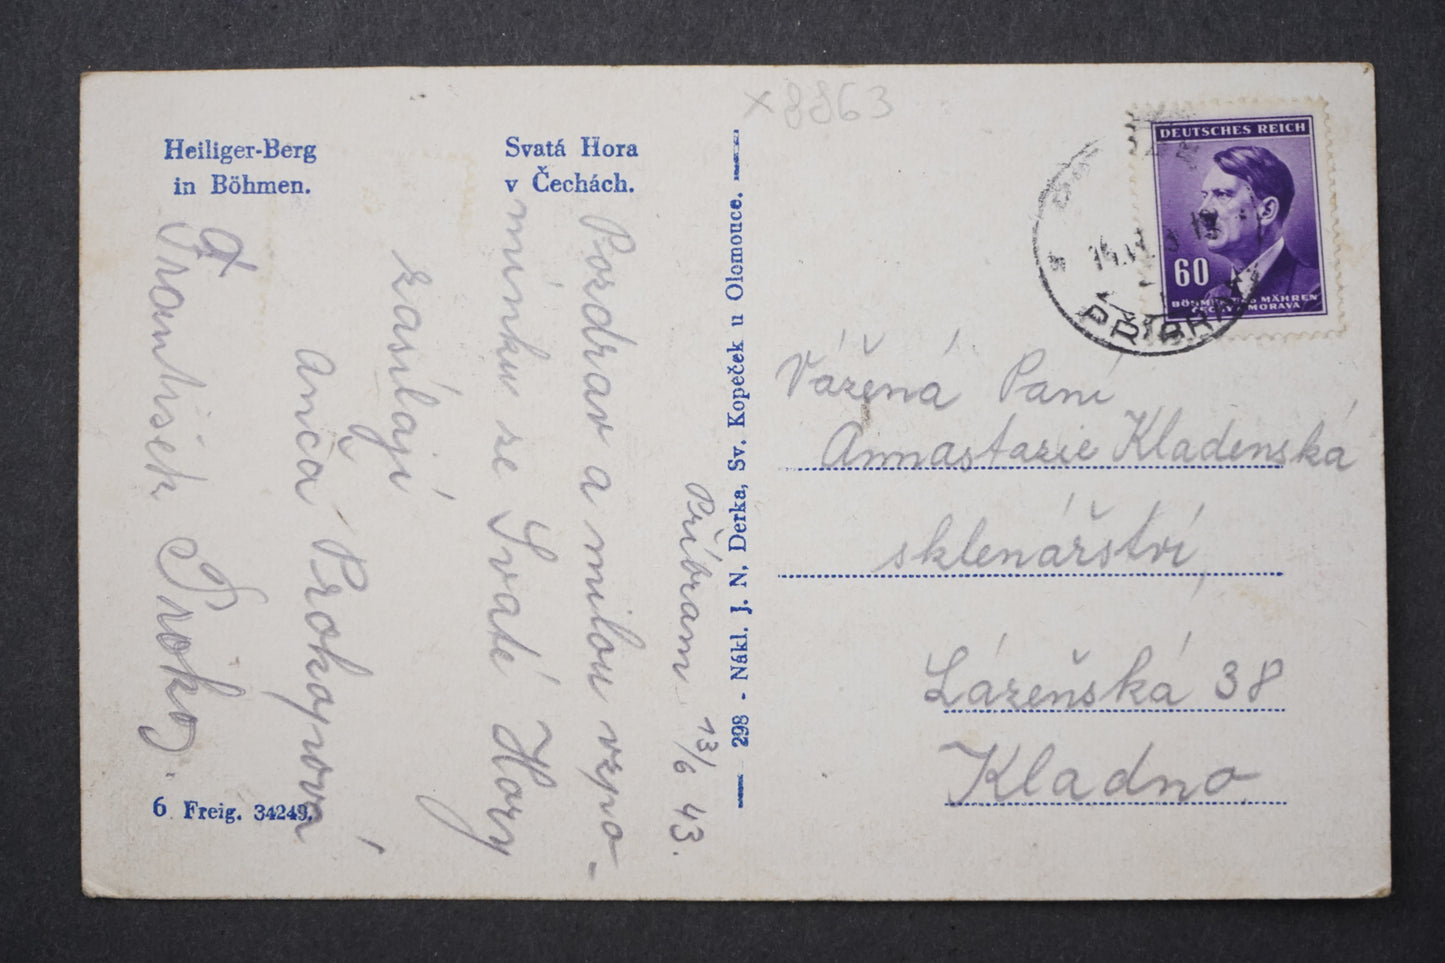 Heiliger-Berg
in Böhmen.
Svatá Hora
v Čechách.
Příbram 13/6 43.
Pozdrav a milou vzpo-
mínku ze Svaté Hory
zasílají
Anča Prokopová
a
František Prokop.
6 Freig. 34249.
298 - Nákl. J. N. Derka, Sv. Kopeček u Olomouce.
x8863
DEUTSCHES REICH
60
BÖHMEN UND MÄHREN
ČECHY A MORAVA
PŘÍBRAM
Vážená Paní
Annastazie Kladenská
sklenářství,
Lázeňská 38
Kladno.